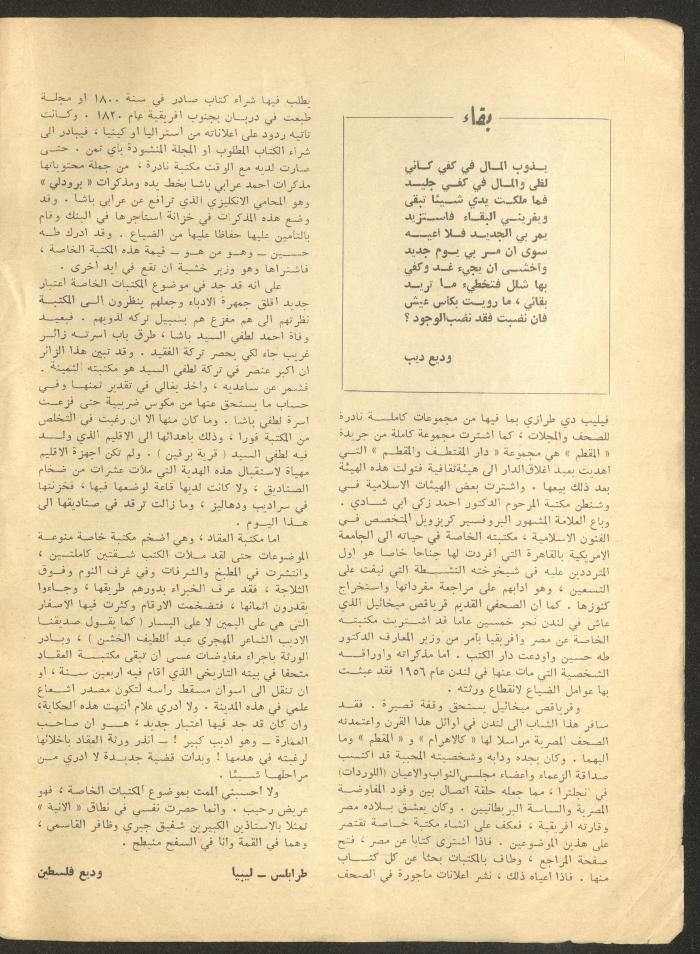 بقاء
يذوب المال في كفي كاني
لظى والمال في كفي جليد
فما ملكت يدي شيئا تبقى
ويغريني البقاء فاستزيد
يمر بي الجديد فلا اعيه
سوى ان مر بي يوم جديد
واخشى ان يجيء غد وكفي
بها شلل فتخطيء ما تريد
بقائي ، ما رويت بكاس عيش
فان نضبت فقد نضب الوجود ؟
وديع ديب
فيليب دي طرازي بما فيها من مجموعات كاملة نادرة
للصحف والمجلات ، كما اشترت مجموعة كاملة من جريدة
« المقطم » هي مجموعة « دار المقتطف والمقطم » التي
اهديت بعيد اغلاق الدار الى هيئة ثقافية فتولت هذه الهيئة
بعد ذلك بيعها . واشترت بعض الهيئات الاسلامية في
وشنطن مكتبة المرحوم الدكتور احمد زكي ابي شادي .
وباع العلامة المشهور البروفسير كريزويل المتخصص في
الفنون الاسلامية ، مكتبته الخاصة في حياته الى الجامعة
الامريكية بالقاهرة التي افردت لها جناحا خاصا هو اول
المترددين عليه في شيخوخته النشطة التي نيفت على
التسعين ، وهو ادابهم على مراجعة مفرداتها واستخراج
كنوزها . كما ان الصحفي القديم قرياقص ميخائيل الذي
عاش في لندن نحو خمسين عاما قد اشتريت مكتبته
الخاصة عن مصر وافريقيا بامر من وزير المعارف الدكتور
طه حسين واودعت دار الكتب . اما مذكراته واوراقه
الشخصية التي مات عنها في لندن عام ١٩٥٦ فقد عبثت
بها عوامل الضياع لانقطاع ورثته .
وقرياقص ميخائيل يستحق وقفة قصيرة . فقد
سافر هذا الشاب الى لندن في اوائل هذا القرن واعتمدته
الصحف المصرية مراسلا لها « كالاهرام » و « المقطم » وما
اليهما . وكان بجده ودابه وشخصيته المحببة قد اكتسب
صداقة الزعماء واعضاء مجلسي النواب والاعيان (اللوردات)
في انجلترا ، مما جعله حلقة اتصال بين وفود المفاوضة
المصرية والساسة البريطانيين . وكان يعشق بلاده مصر
وقارته افريقية ، فعكف على انشاء مكتبة خاصة تقتصر
على هذين الموضوعين . فاذا اشترى كتابا عن مصر ، فتح
صفحة المراجع ، وطاف بالمكتبات بحثا عن كل كتاب
منها . فاذا اعياه ذلك ، نشر اعلانات ماجورة في الصحف
يطلب فيها شراء كتاب صادر في سنة ١٨٠٠ او مجلة
طبعت في دربان بجنوب افريقية عام ١٨٢٠ . وكانت
تاتيه ردود على اعلاناته من استراليا او كينيا ، فيبادر الى
شراء الكتاب المطلوب او المجلة المنشودة باي ثمن . حتى
صارت لديه مع الوقت مكتبة نادرة ، من جملة محتوياتها
مذكرات احمد عرابي باشا بخط يده ومذكرات « برودلي »
وهو المحامي الانكليزي الذي ترافع عن عرابي باشا . وقد
وضع هذه المذكرات في خزانة استاجرها في البنك وقام
بالتامين عليها حفاظا عليها من الضياع . وقد ادرك طه
حسين ــ وهو من هو ــ قيمة هذه المكتبة الخاصة ،
فاشتراها وهو وزير خشية ان تقع في ايد اخرى .
على انه قد جد في موضوع المكتبات الخاصة اعتبار
جديد اقلق جمهرة الادباء وجعلهم ينظرون الى المكتبة
نظرتهم الى هم مفزع هم بسبيل تركه لذويهم . فبعيد
وفاة احمد لطفي السيد باشا ، طرق باب اسرته زائر
غريب جاء لكي يحصر تركة الفقيد . وقد تبين هذا الزائر
ان اكبر عنصر في تركة لطفي السيد هو مكتبته الثمينة .
فشمر عن ساعديه ، واخذ يغالي في تقدير ثمنها وفي
حساب ما يستحق عنها من مكوس ضريبية حتى فزعت
اسرة لطفي باشا . وما كان منها الا ان رغبت في التخلص
من المكتبة فورا ، وذلك باهدائها الى الاقليم الذي ولد
فيه لطفي السيد ( قرية برقين ) . ولم تكن اجهزة الاقليم
مهياة لاستقبال هذه الهدية التي ملات عشرات من ضخام
الصناديق ، ولا كانت لديها قاعة لوضعها فيها ، فخزنتها
في سراديب ودهاليز ، وما زالت ترقد في صناديقها الى
هذا اليوم .
اما مكتبة العقاد ، وهي اضخم مكتبة خاصة منوعة
الموضوعات حتى لقد ملات الكتب شقتين كاملتين ،
وانتشرت في المطبخ والشرفات وفي غرف النوم وفوق
الثلاجة ، فقد عرف الخبراء بدورهم طريقها ، وجاءوا
يقدرون اثمانها ، فتضخمت الارقام وكثرت فيها الاصفار
التي هي على اليمين لا على اليسار ( كما يقول صديقنا
الاديب الشاعر المهجري عبد اللطيف الخشن ) ، وبادر
الورثة باجراء مفاوضات عسى ان تبقى مكتبة العقاد
متحفا في بيته التاريخي الذي اقام فيه اربعين سنة ، او
ان تنقل الى اسوان مسقط راسه لتكون مصدر اشعاع
علمي في هذه المدينة . ولا ادري علام انتهت هذه الحكاية،
وان كان قد جد فيها اعتبار جديد ، هو ان صاحب
العمارة ــ وهو اديب كبير ! ــ انذر ورثة العقاد باخلائها
لرغبته في هدمها ! وبدات قضية جديدة لا ادري من
مراحلها شيئا .
ولا احسبني الممت بموضوع المكتبات الخاصة ، فهو
عريض رحيب . وانما حصرت نفسي في نطاق « الانية »
تمثلا بالاستاذين الكبيرين شفيق جبري وظافر القاسمي ،
وهما في القمة وانا في السفح منبطح .
طرابلس ــ ليبيا
وديع فلسطين